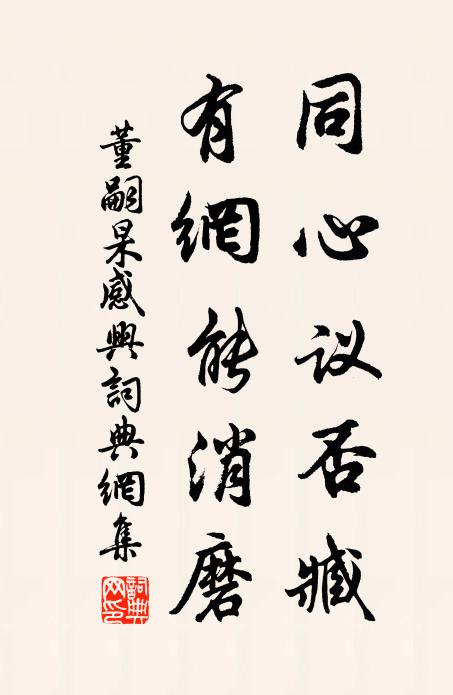 同心议否臧
有網能消磨
董嗣杲感興詞典網集
詞典網印